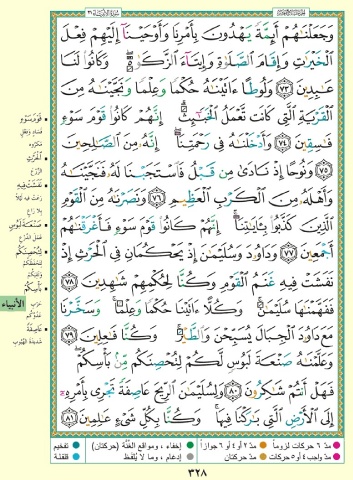 سُورَةُ الأَنْبِيَاءِ ٢١
وَجَعَلْنَٰهُمْ أَئِمَّةً يَهْدُونَ بِأَمْرِنَا وَأَوْحَيْنَآ إِلَيْهِمْ فِعْلَ
ٱلْخَيْرَٰتِ وَإِقَامَ ٱلصَّلَوٰةِ وَإِيتَآءَ ٱلزَّكَوٰةِ ۖ وَكَانُوا۟ لَنَا
عَٰبِدِينَ ٧٣ وَلُوطًا ءَاتَيْنَٰهُ حُكْمًا وَعِلْمًا وَنَجَّيْنَٰهُ مِنَ
ٱلْقَرْيَةِ ٱلَّتِى كَانَت تَّعْمَلُ ٱلْخَبَٰٓئِثَ ۗ إِنَّهُمْ كَانُوا۟ قَوْمَ سَوْءٍ
فَٰسِقِينَ ٧٤ وَأَدْخَلْنَٰهُ فِى رَحْمَتِنَآ ۖ إِنَّهُۥ مِنَ ٱلصَّٰلِحِينَ
٧٥ وَنُوحًا إِذْ نَادَىٰ مِن قَبْلُ فَٱسْتَجَبْنَا لَهُۥ فَنَجَّيْنَٰهُ
وَأَهْلَهُۥ مِنَ ٱلْكَرْبِ ٱلْعَظِيمِ ٧٦ وَنَصَرْنَٰهُ مِنَ ٱلْقَوْمِ
ٱلَّذِينَ كَذَّبُوا۟ بِـَٔايَٰتِنَآ ۚ إِنَّهُمْ كَانُوا۟ قَوْمَ سَوْءٍ فَأَغْرَقْنَٰهُمْ
أَجْمَعِينَ ٧٧ وَدَاوُۥدَ وَسُلَيْمَٰنَ إِذْ يَحْكُمَانِ فِى ٱلْحَرْثِ إِذْ
نَفَشَتْ فِيهِ غَنَمُ ٱلْقَوْمِ وَكُنَّا لِحُكْمِهِمْ شَٰهِدِينَ ٧٨
فَفَهَّمْنَٰهَا سُلَيْمَٰنَ ۚ وَكُلًّا ءَاتَيْنَا حُكْمًا وَعِلْمًا ۚ وَسَخَّرْنَا
مَعَ دَاوُۥدَ ٱلْجِبَالَ يُسَبِّحْنَ وَٱلطَّيْرَ ۚ وَكُنَّا فَٰعِلِينَ ٧٩
وَعَلَّمْنَٰهُ صَنْعَةَ لَبُوسٍ لَّكُمْ لِتُحْصِنَكُم مِّنۢ بَأْسِكُمْ ۖ
فَهَلْ أَنتُمْ شَٰكِرُونَ ٨٠ وَلِسُلَيْمَٰنَ ٱلرِّيحَ عَاصِفَةً تَجْرِى بِأَمْرِهِۦٓ
إِلَى ٱلْأَرْضِ ٱلَّتِى بَٰرَكْنَا فِيهَا ۚ وَكُنَّا بِكُلِّ شَىْءٍ عَٰلِمِينَ ٨١
قَوْمَ سَوْءٍ
فساد وفعل مكروه
الْحَرْثِ
الزرع
نَفَشَتْ فِيهِ
صَنْعَةَ لَبُوسٍ
لِتُحْصِنَكُمْ
بَأْسِكُمْ
عَاصِفَةً
شديدة الهبوب
الأنبياء
مدّ ٦ حركات لزوماً
مدّ ٢ أو ٤ أو ٦ جوازاً
إخفاء، ومواقع الغُنَّة (حركتان)
تفخيم
مدّ واجب ٤ أو ٥ حركات
مدّ حركتان
إدغام، وما لا يُلفظ
قلقلة
٣٢٨